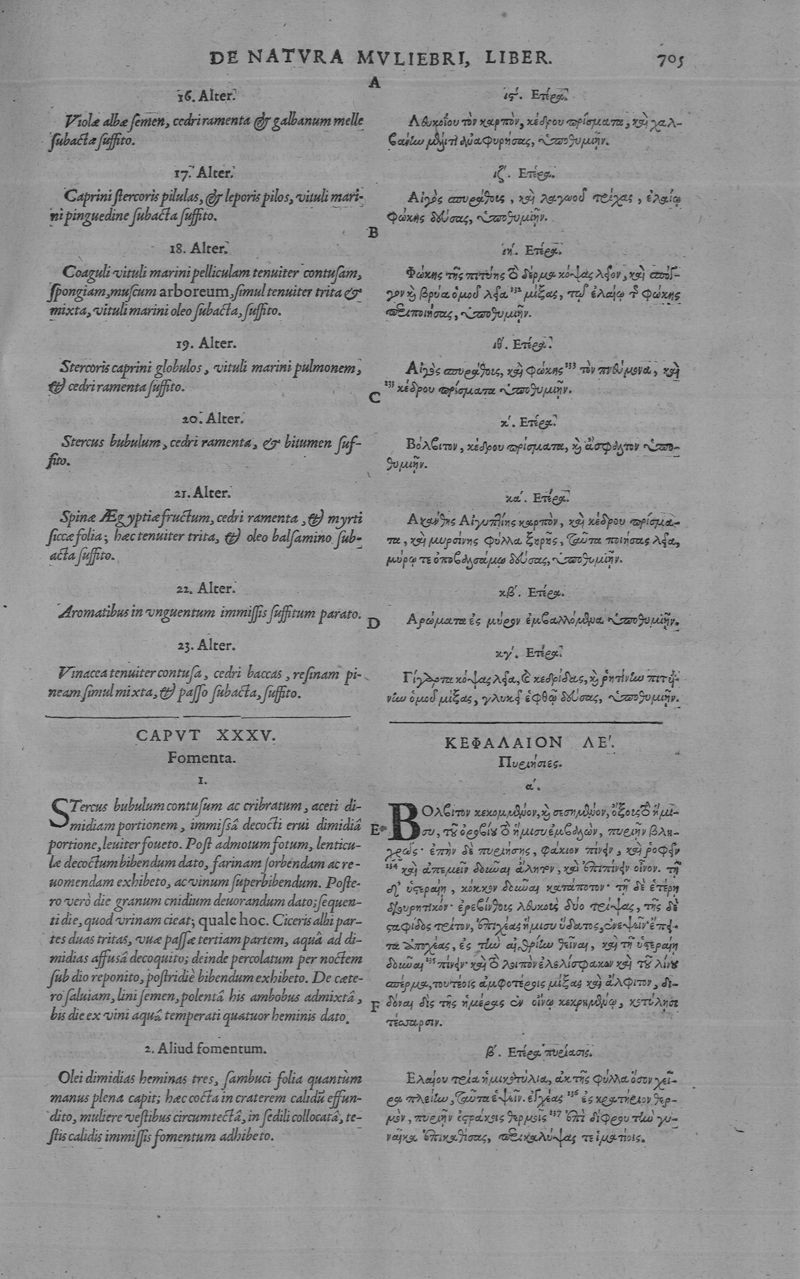 DE NATVRA MVLIEBRI, LIBER. 705
A
16. Alter.
Violæ albæ semen, cedri ramenta & galbanum melle
subacta suffito.
17. Alter.
Caprini stercoris pilulas, & leporis pilos, vituli mari-
ni pinguedine subacta suffito.
18. Alter.
Coaguli vituli marini pelliculam tenuiter contusam,
spongiam, muscum arboreum, simul tenuiter trita &
mixta, vituli marini oleo subacta, suffito.
19. Alter.
Stercoris caprini globulos, vituli marini pulmonem,
& cedri ramenta suffito.
20. Alter.
Stercus bubulum, cedri ramenta, & bitumen suf-
fito.
21. Alter.
Spinæ Ægyptiæ fructum, cedri ramenta, & myrti
siccæ folia; hæc tenuiter trita, & oleo balsamino sub-
acta suffito.
22. Alter.
Aromatibus in vnguentum immissis suffitum parato.
23. Alter.
Vinacea tenuiter contusa, cedri baccas, resinam pi-
neam simul mixta, & passo subacta, suffito.
CAPVT XXXV.
Fomenta.
1.
STercus bubulum contusum ac cribratum, aceti di-
midiam portionem, immissâ decocti erui dimidiâ
portione, leuiter foueto. Post admotum fotum, lenticu-
læ decoctum bibendum dato, farinam sorbendam ac re-
uomendam exhibeto, ac vinum superbibendum. Poste-
ro verò die granum cnidium deuorandum dato; sequen-
ti die, quod vrinam cieat; quale hoc. Ciceris albi par-
tes duas tritas, vuæ passæ tertiam partem, aquâ ad di-
midias affusâ decoquito; deinde percolatum per noctem
sub dio reponito, postridiè bibendum exhibeto. De cæte-
ro saluiam, lini semen, polentâ his ambobus admixtâ,
bis die ex vini aquâ temperati quatuor heminis dato.
2. Aliud fomentum.
Olei dimidias heminas tres, sambuci folia quantùm
manus plena capit; hæc cocta in craterem calidũ effun-
dito, muliere vestibus circumtectâ, in sedili collocatâ, te-
stis calidis immissis fomentum adhibeto.
ιϛ'. Ετέρη.
Λευκοΐου τὸν καρπὸν, κέδρου πρίσματα, καὶ χαλ-
βάνην μέλιτι ἀναφυρήσας, ὑποθυμιῇν.
ιζ'. Ετέρη.
Αἰγὸς σπυράθους, καὶ λαγωοῦ τρίχας, ἐλαίῳ
φώκης δεύσας, ὑποθυμιῇν.
B
ιη'. Ετέρη.
Φώκης τῆς πιτύης τὸ δέρμα κόψας λεῖον, καὶ σπόγ-
γον καὶ βρύα ὁμοῦ λεῖα 132 μίξας, τῷ ἐλαίῳ τῆς φώκης
περιποιήσας, ὑποθυμιῇν.
ιθ'. Ετέρη.
Αἰγὸς σπυράθους, καὶ φώκης 133 τὸν πνεύμονα, καὶ
C
133 κέδρου πρίσματα ὑποθυμιῇν.
κ'. Ετέρη.
Βόλβιτον, κέδρου πρίσματα, καὶ ἄσφαλτον ὑπο-
θυμιῇν.
κα'. Ετέρη.
Ακάνθης Αἰγυπτίης καρπὸν, καὶ κέδρου πρίσμα-
τα, καὶ μυρσίνης φύλλα ξηρῆς, ταῦτα ποιήσας λεῖα,
μύρῳ τε ὀποβαλσάμῳ δεύσας, ὑποθυμιῇν.
κβ'. Ετέρη.
D
Αρώματα ἐς μύρον ἐμβαλλόμενα ὑποθυμιῇν.
κγ'. Ετέρη.
Γίγαρτα κόψας λεῖα, καὶ κεδρίδας, καὶ ῥητίνην πιτυΐ-
νην ὁμοῦ μίξας, γλυκεῖ ἑφθῷ δεύσας, ὑποθυμιῇν.
ΚΕΦΑΛΑΙΟΝ ΛΕ'.
Πυριήσιες.
α'.
E
ΒΟλβιτον κεκομμένον, καὶ σεσημένον, ὄξους τὸ ἥμι-
συ, τοῦ ὀρόβου τὸ ἥμισυ ἐμβαλὼν, πυριῇν βλη-
χρῶς· ἐπὴν δὲ πυριήσῃς, φάκιον πίνειν, καὶ ῥοφεῖν
134 καὶ ἀπεμεῖν δοῦναι ἄλητον, καὶ ἐπιπίνειν οἶνον. τῇ
δ' ὑστεραίῃ, κόκκον δοῦναι καταπότον· τῇ δὲ ἑτέρῃ
διουρητικόν· ἐρεβίνθους λευκοὺς δύο τρίψας, τῆς δὲ
σταφίδος τρίτον, ἐπιχέας ἥμισυ ὕδατος, συνέψειν· ἔπει-
τα ἀποχέας, ἐς τὴν αἰθρίην θεῖναι, καὶ τῇ ὑστεραίῃ
δοῦναι 135 πίνειν· καὶ τὸ λοιπὸν ἐλελίσφακον καὶ τοῦ λίνου
σπέρμα, τουτέοις ἀμφοτέροις μίξας καὶ ἄλφιτον, δι-
F
δόναι δὶς τῆς ἡμέρας ἐν οἴνῳ κεκρημένῳ, κοτύλῃσι
τέσσαρσιν.
β'. Ετέρη πυρίασις.
Ελαίου τρία ἡμικοτύλια, ἀκτῆς φύλλα ὅσον χεῖ-
ρα πλείην, ταῦτα ἑψεῖν. ἐγχέας 136 ἐς κρατῆρα θερ-
μὸν, πυριῇν ὀστράκοις θερμοῖς 137 ἐπὶ δίφρου τὴν γυ-
ναῖκα ἐπικαθίσας, περικαλύψας τε ἱματίοις.